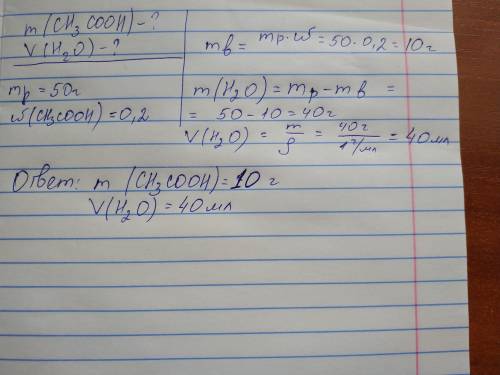 m (CH₃COOH) - ?
V(H₂O) - ?
mр = 50г
ω(CH₃COOH) = 0,2
mв = mр · ω = 50 · 0,2 = 10 г
m(H₂O) = mр - mв =
= 50 - 10 = 40г
V(H₂O) = m/ρ = 40г/1г/мл = 40 мл
Ответ: m (CH₃COOH) = 10 г
V(H₂O) = 40 мл